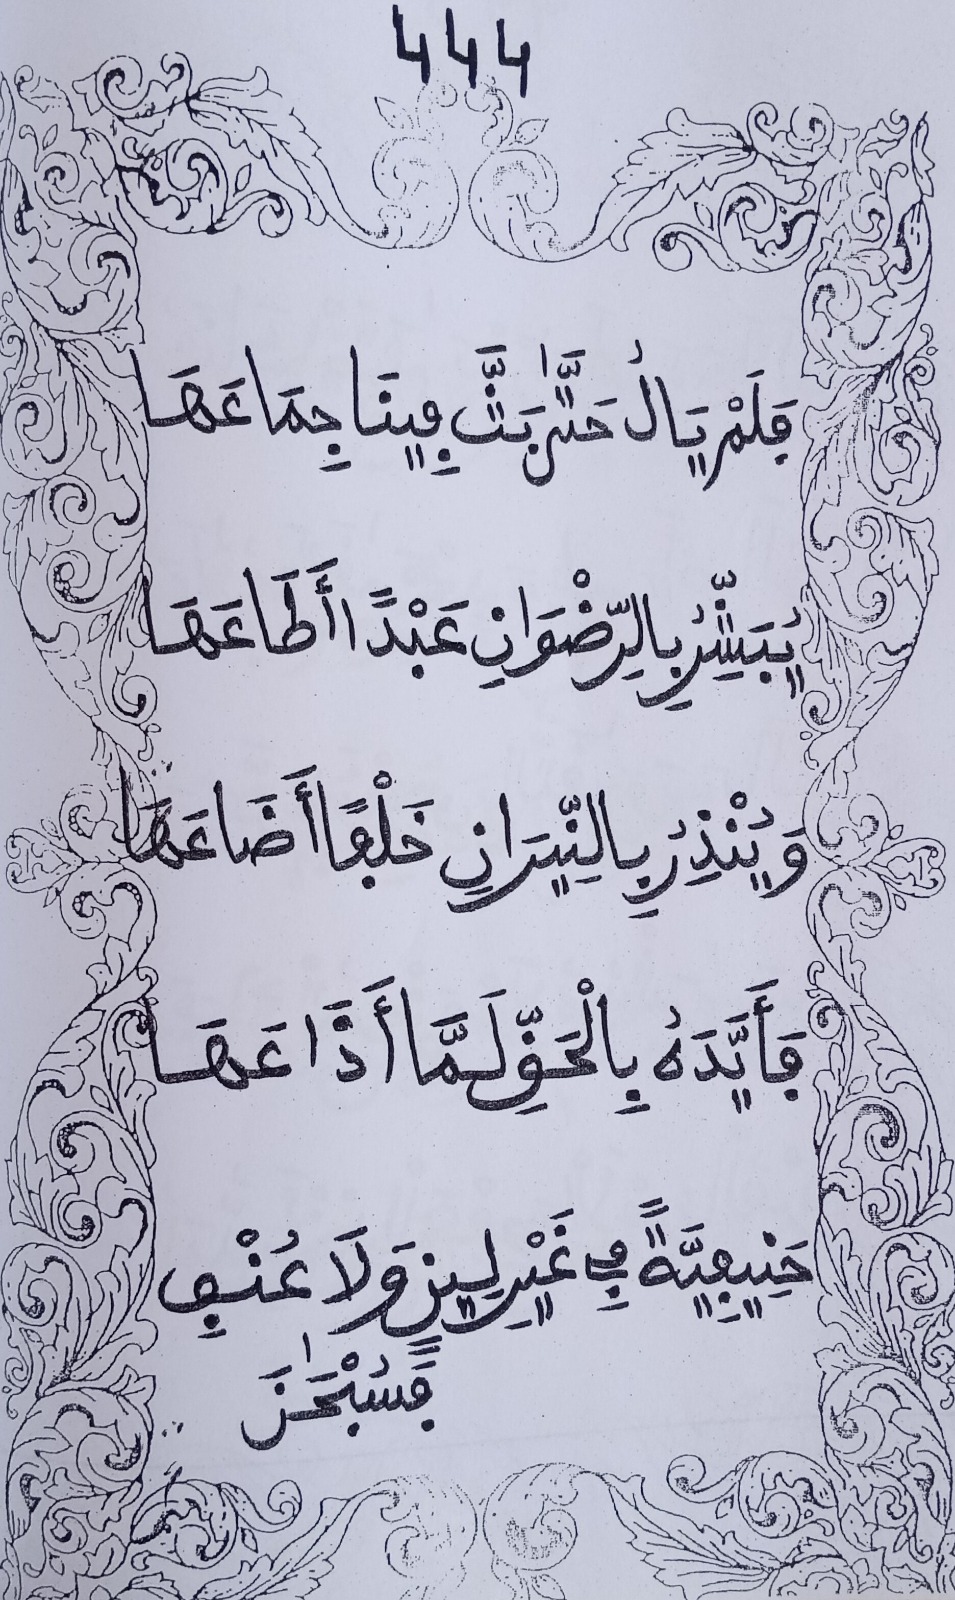 444
فَلَمْ يَالُ حَتَّىٰ بَثَّ فِينَا جِمَاعَهَا
يُبَشِّرُ بِالرِّضْوَانِ عَبْدًا أَطَاعَهَا
وَيُنْذِرُ بِالنِّيرَانِ خَلْقًا أَضَاعَهَا
فَأَيَّدَهُ بِالْحَقِّ لَمَّا أَذَاعَهَا
حَنِيفِيَّةً فِي غَيْرِ لِينٍ وَلَا عُنْفِ
فَسُبْحَٰنَ